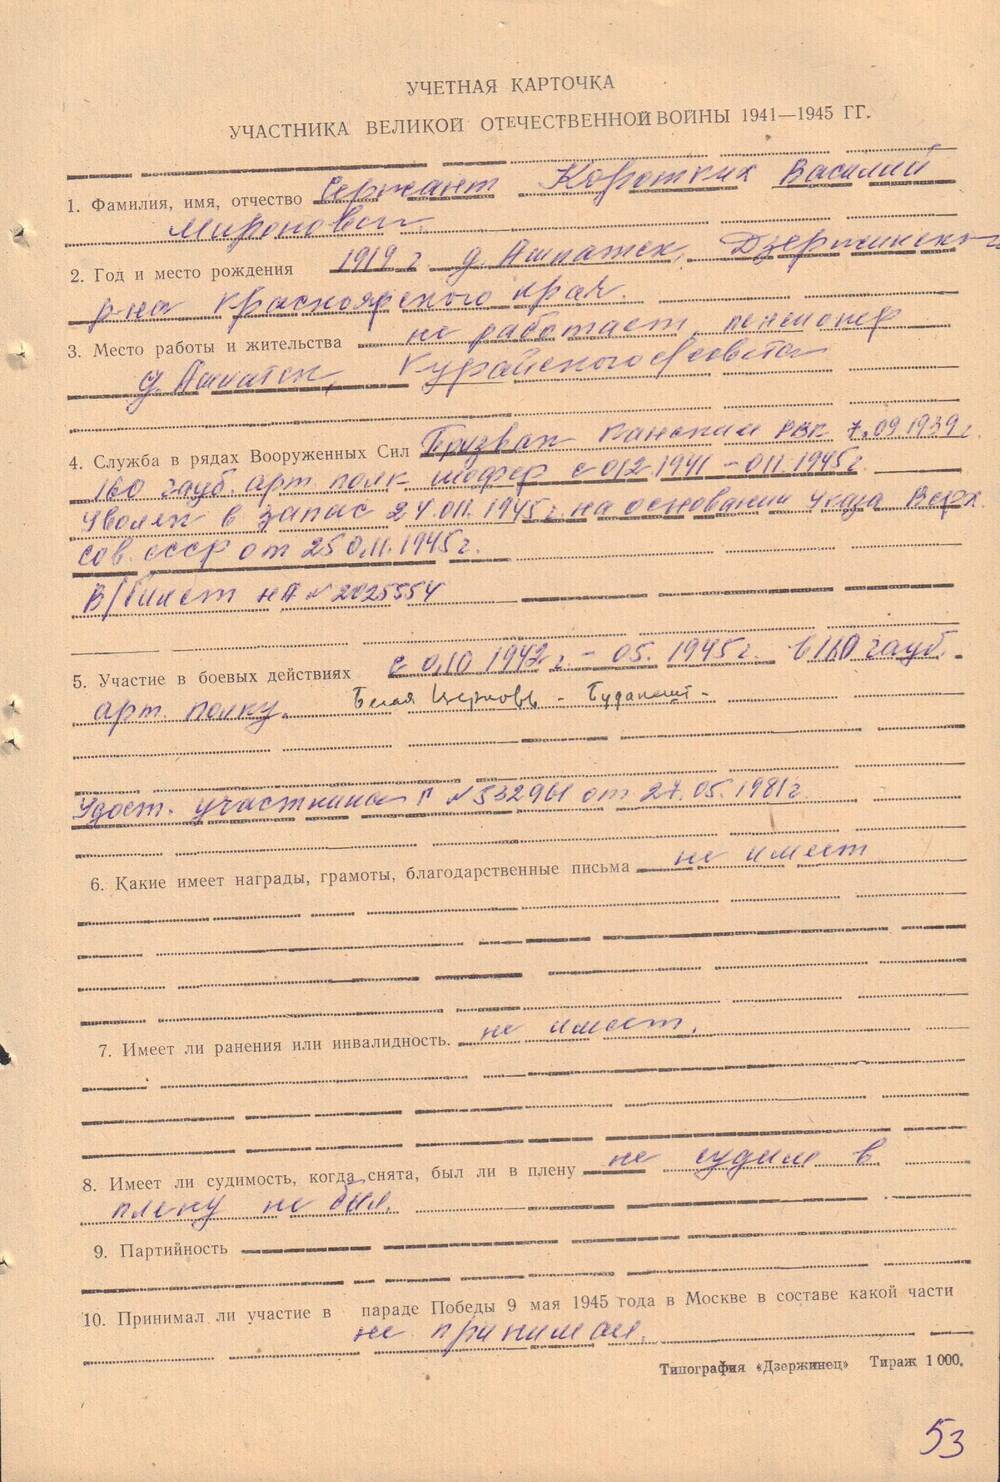 УЧЕТНАЯ КАРТОЧКА
УЧАСТНИКА ВЕЛИКОЙ ОТЕЧЕСТВЕННОЙ ВОЙНЫ 1941—1945 ГГ.
1. Фамилия, имя, отчество Сержант Коротких Василий
Миронович.
2. Год и место рождения 1919 г. д. Ашпатск, Дзержинского
р-на Красноярского края.
3. Место работы и жительства не работает, пенсионер
д. Ашпатск, Курайского с/совета
4. Служба в рядах Вооруженных Сил Призван Канским РВК 7.09.1939г.
160 гауб. арт. полк шофер с 012.1941 – 011.1945г.
Уволен в запас 24.011.1945г. на основании Указа Верх.
сов. СССР от 25 0.11.1945г.
В/билет НА № 2025554
5. Участие в боевых действиях с 010 1942 г. – 05. 1945г. в 160 гауб.
арт. полку. Белая Церковь – Будапешт –
Удост. участника Г № 532961 от 27.05.1981г.
6. Какие имеет награды, грамоты, благодарственные письма не имеет
7. Имеет ли ранения или инвалидность. не имеет.
8. Имеет ли судимость, когда снята, был ли в плену не судим в
плену не был.
9. Партийность
10. Принимал ли участие в параде Победы 9 мая 1945 года в Москве в составе какой части
не принимал.
Типография «Дзержинец» Тираж 1 000.
53